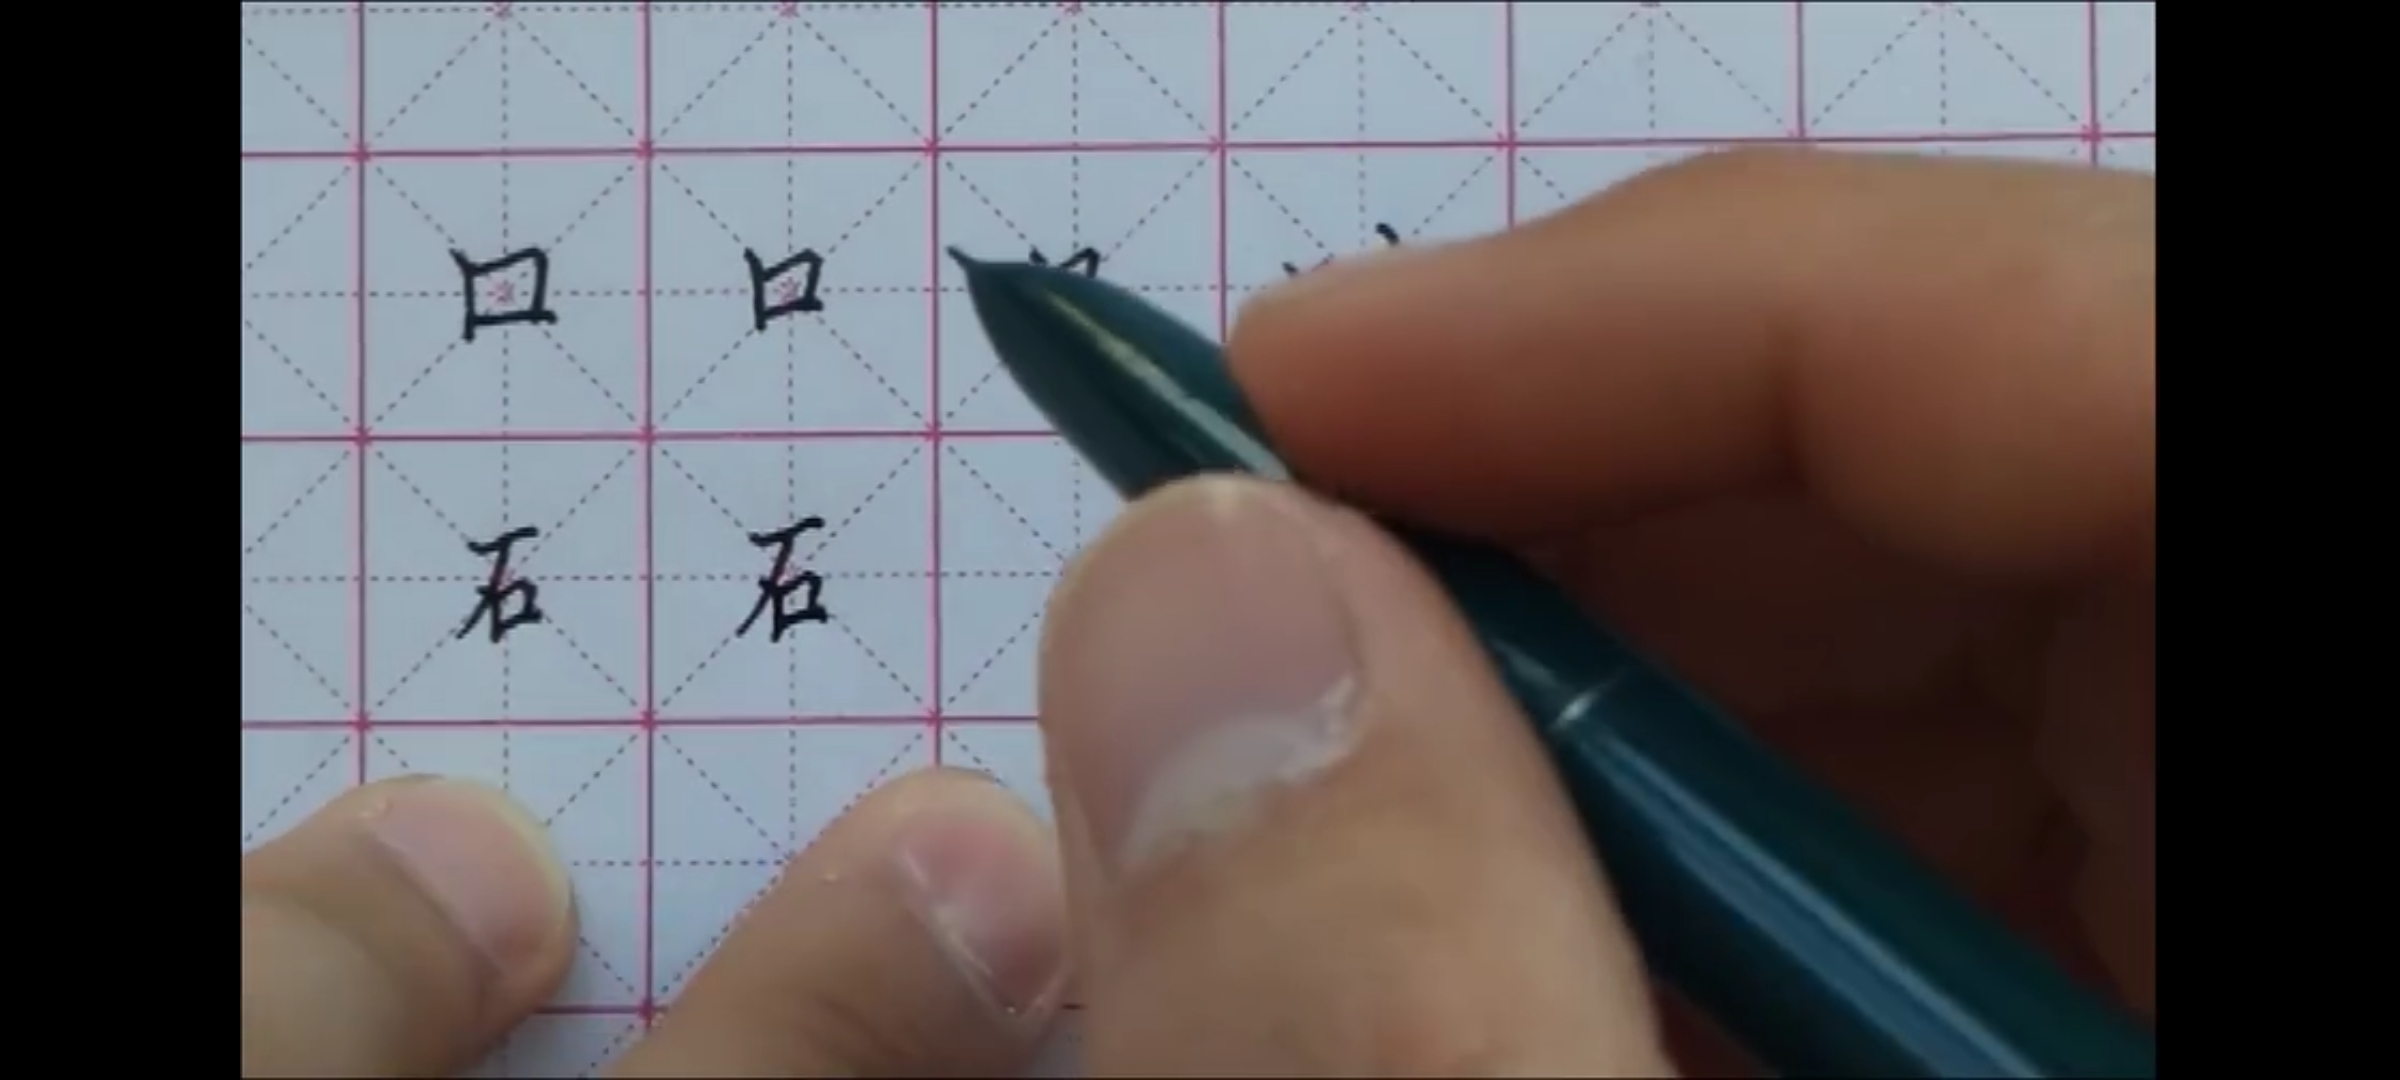 口 口
石 石